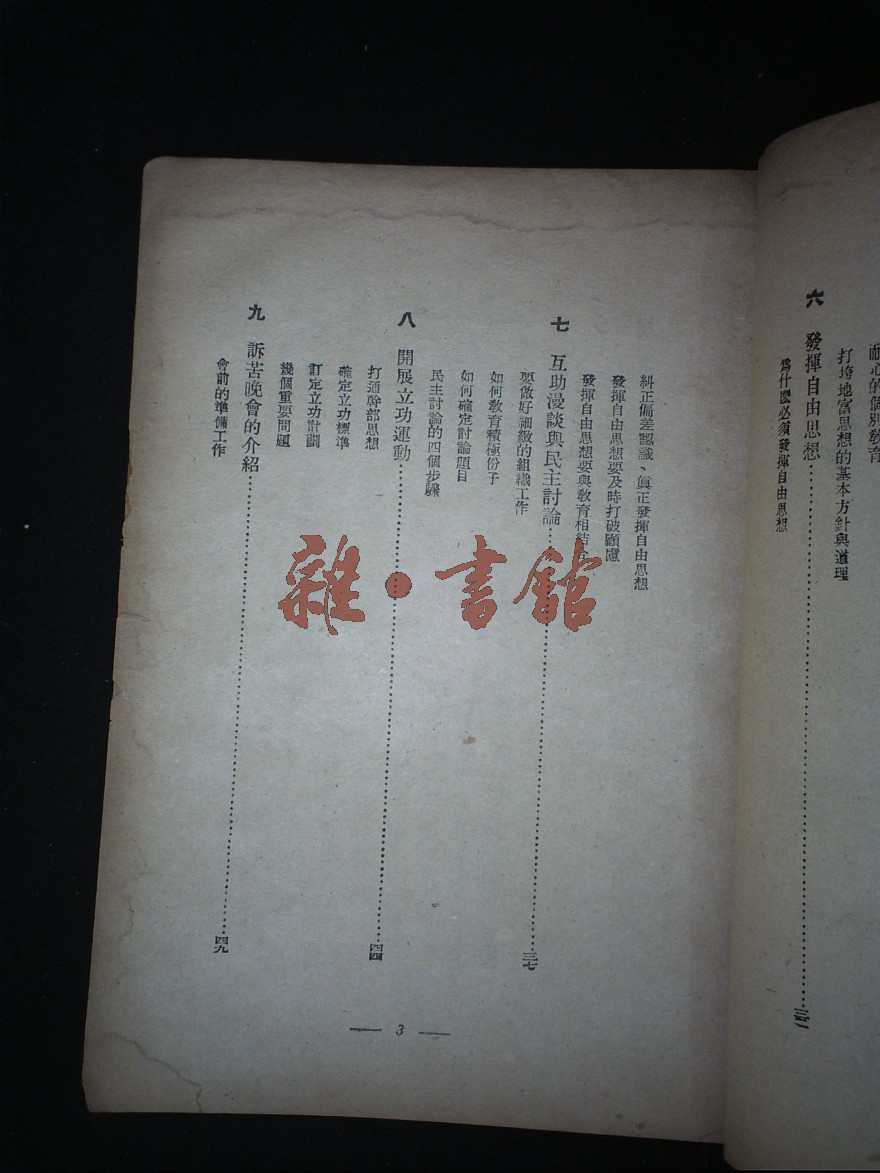 耐心的個別教育
打垮地富思想的基本方針與道理
六 發揮自由思想
爲什麽必須發揮自由思想
糾正偏差認識、眞正發揮自由思想
發揮自由思想要及時打破顧慮
發揮自由思想要與敎育相結合
七 互助漫談與民主討論 三七
要做好細緻的組織工作
如何敎育積極份子
如何確定討論題目
民主討論的四個步驟
八 開展立功運動 四四
打通幹部思想
確定立功標準
訂定立功計劃
幾個重要問題
九 訴苦晚會的介紹 四九
會前的準備工作
— 3 —
雜·書館